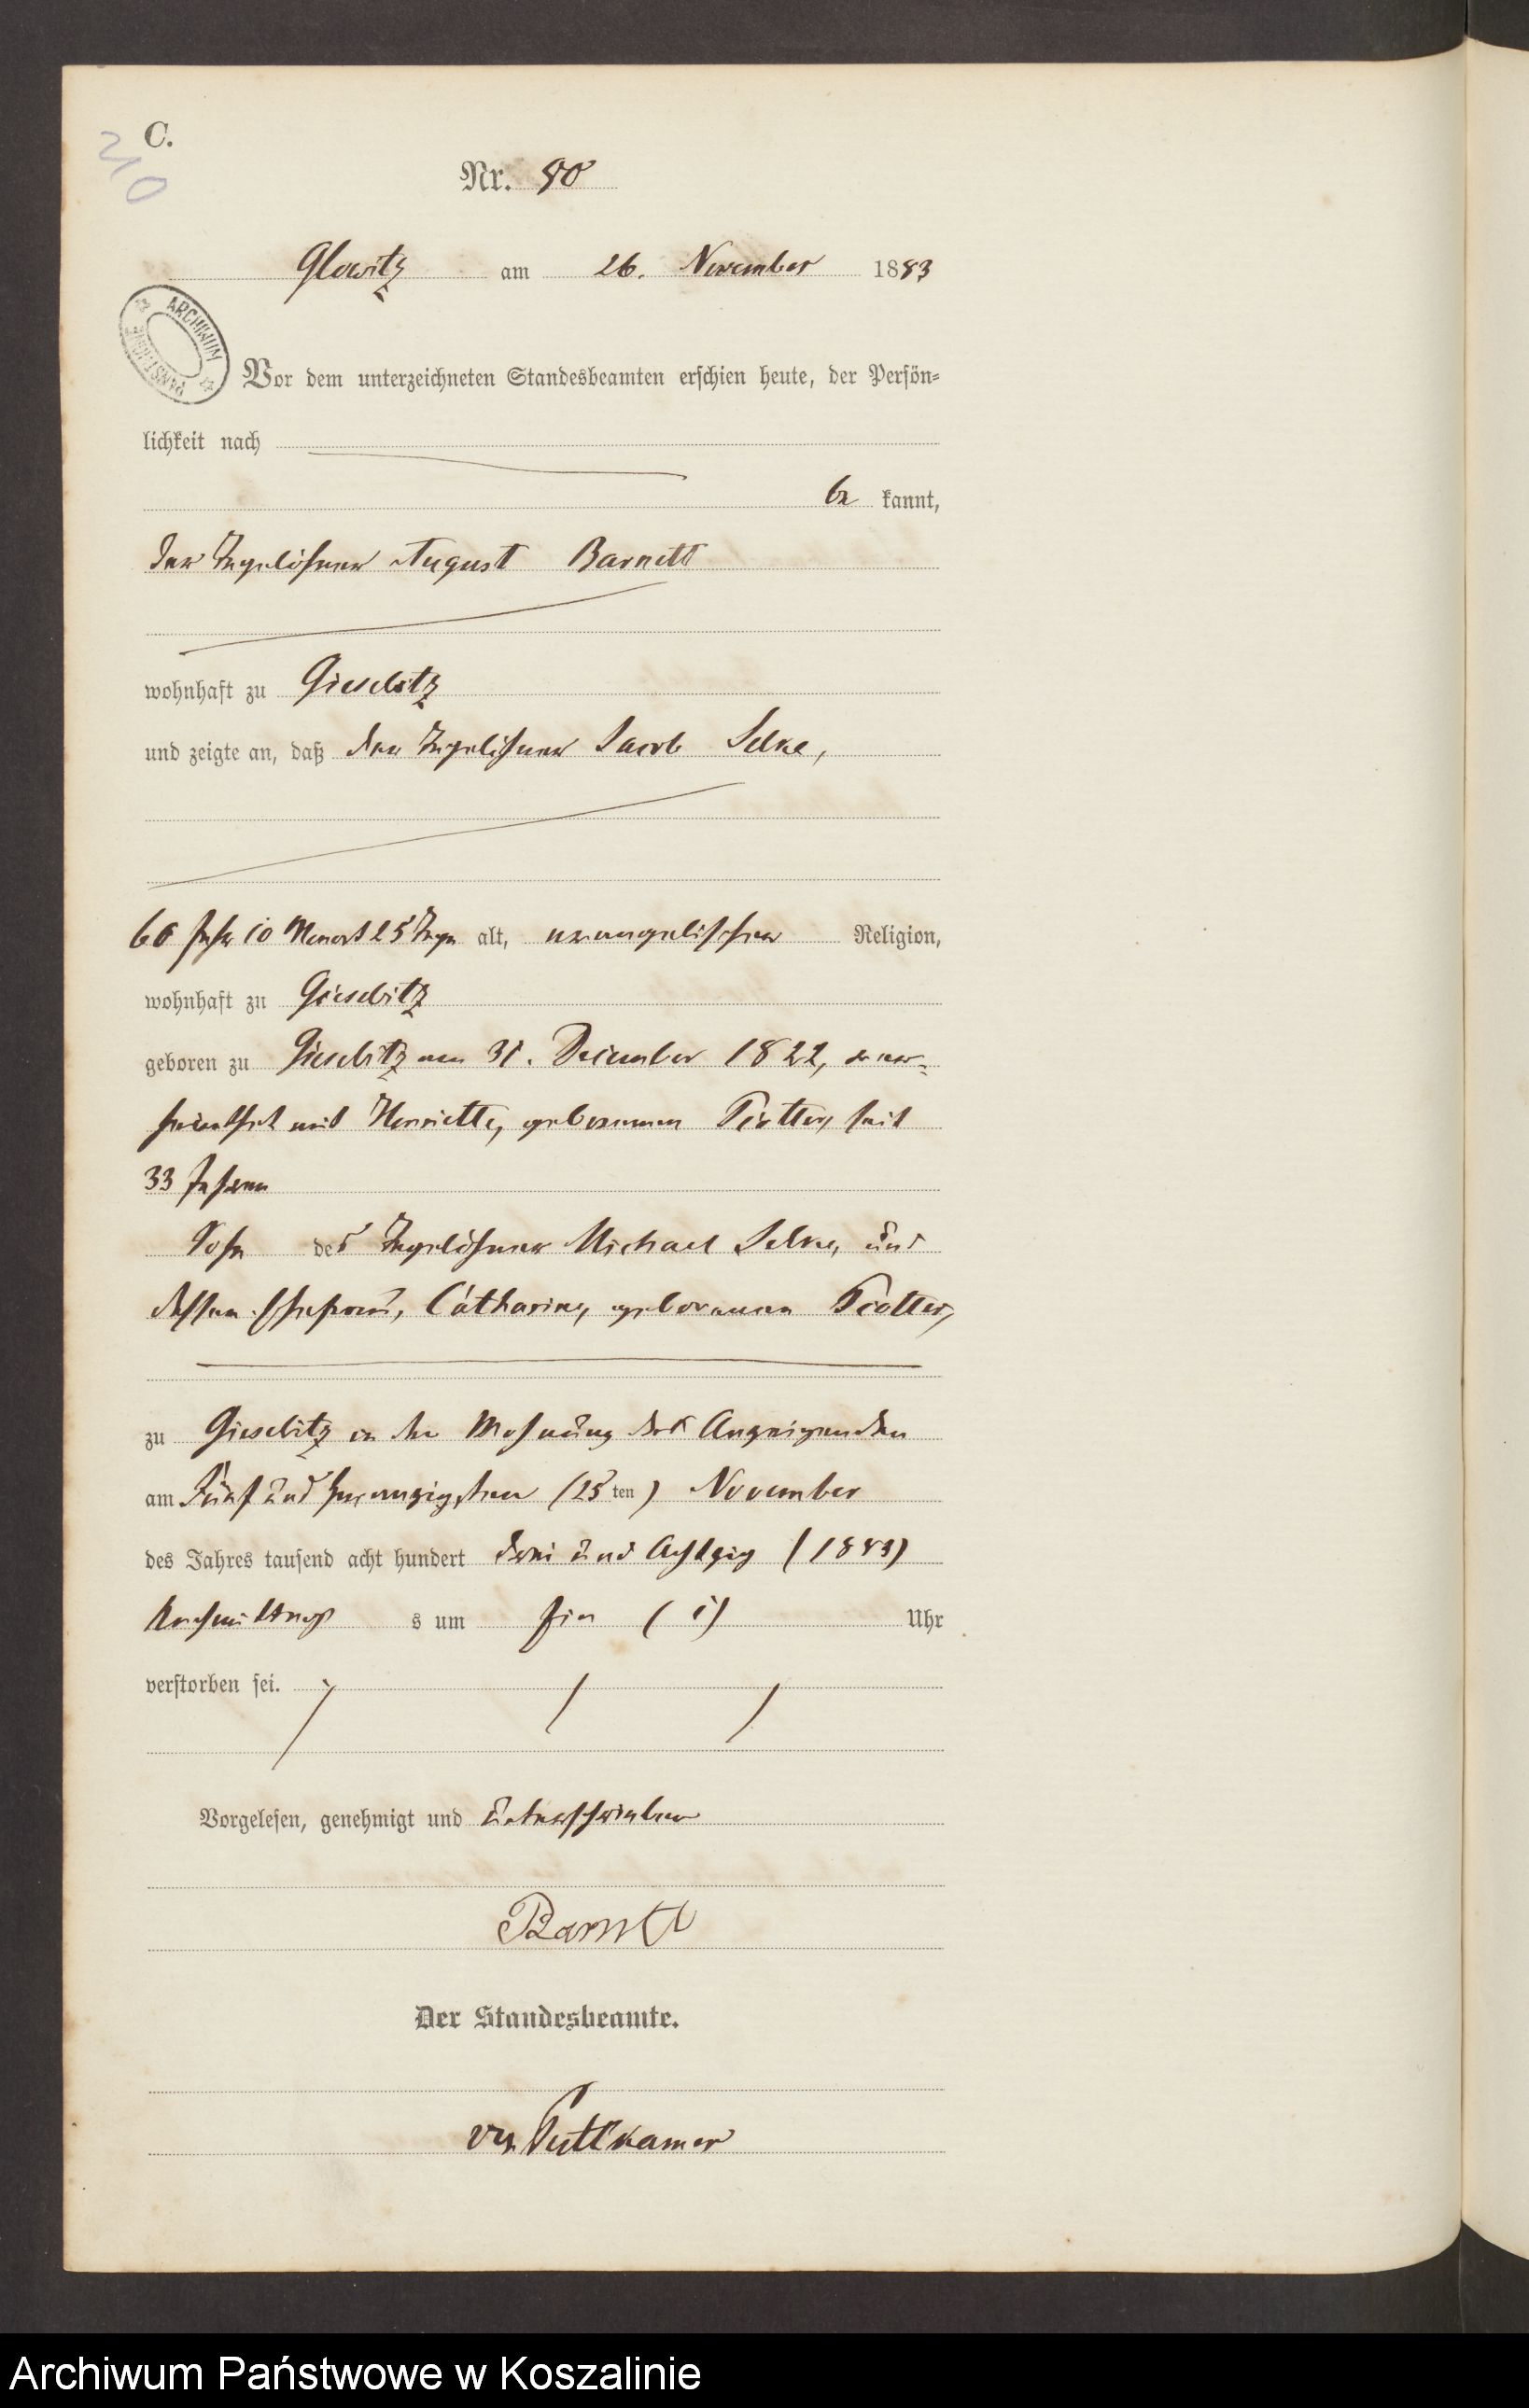 C.
210
Nr. 80
Glowitz am 26. November 1883
ARCHIWUM PAŃSTWOWE
Vor dem unterzeichneten Standesbeamten erschien heute, der Persön=
lichkeit nach
be kannt,
der Tagelöhner August Barnett
wohnhaft zu Gieselitz
und zeigte an, daß der Tagelöhner Jacob Selke,
60 Jahr 10 Monat 25 Tage alt, evangelischer Religion,
wohnhaft zu Giesebitz
geboren zu Giesebitz am 31. December 1822, ver=
heirathet mit Henriette, geborenen seit
33 Jahren
Sohn des Tagelöhner Michael Selke, und
dessen Ehefrau, Catharine, geborenen
zu Giesebitz in der Wohnung des Anzeigenden
am Fünf und zwanzigsten (25 ten) November
des Jahres tausend acht hundert drei und Achtzig (1883)
Nachmittags s um Ein (1) Uhr
verstorben sei.
Vorgelesen, genehmigt und unterschrieben
Barnett
Der Standesbeamte.
von Puttkamer
Archiwum Państwowe w Koszalinie